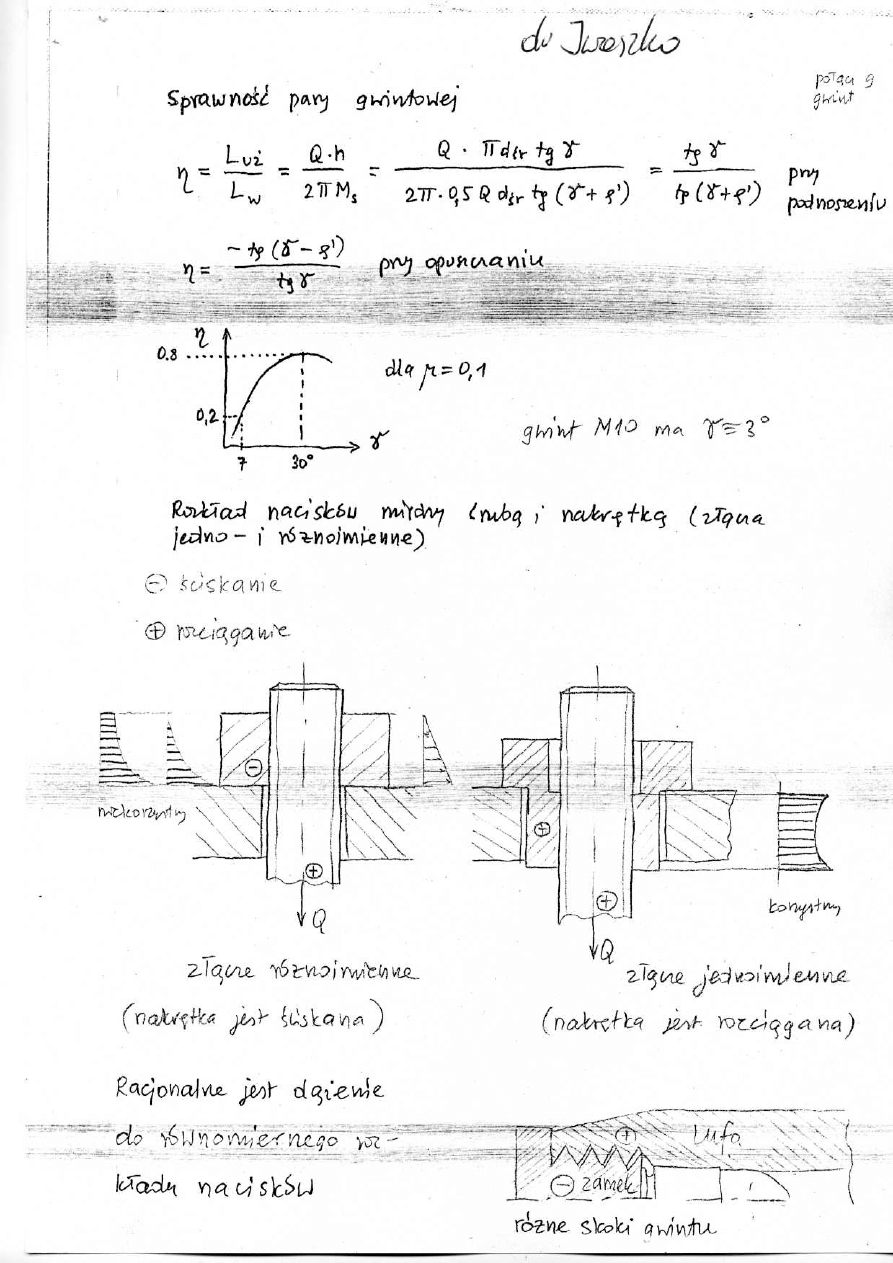 dr Iwaszko
połącz g
gwint
Sprawność pary gwintowej
η = Luż/Lw = Q·h/2πMs = Q · π dśr tg γ / 2π·0,5 Q dśr tg (γ+ρ') = tg γ / tg (γ+ρ') przy podnoszeniu
η = -tg (γ-ρ') / tg γ przy opuszczaniu
η
0.8
0,2
7
30°
γ
dla μ=0,1
gwint M10 ma γ≅3°
Rozkład nacisków między śrubą i nakrętką (złącza
jedno- i różnoimienne)
⊖ ściskanie
⊕ rozciąganie
⊖
⊕
niekorzystny
Q
⊕
⊕
korzystny
Q
złącze różnoimienne
(nakrętka jest ściskana)
złącze jednoimienne
(nakrętka jest rozciągana)
Racjonalne jest dążenie
do równomiernego roz-
kładu nacisków
⊕ Lufa
⊖ zamek
różne skoki gwintu